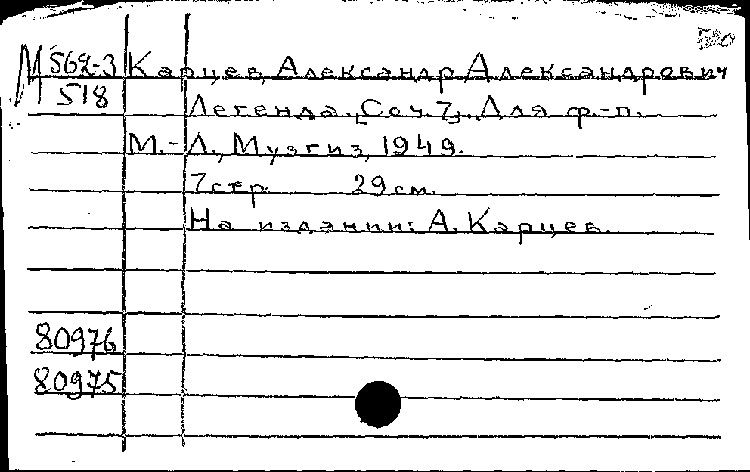 М 562-3 Карцев, Александр Александрович
518
Легенда. [Соч. 7]. Для ф.-п.
М.-Л., Музгиз, 1949.
7 стр. 29 см.
На издании: А. Карцев.
80976
80975